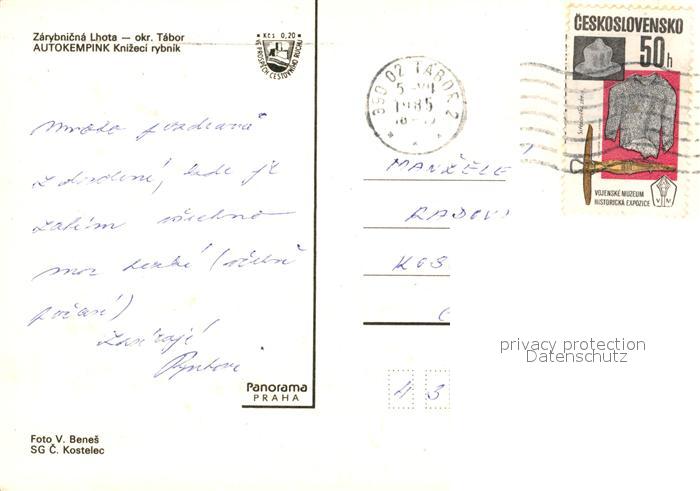 Zárybničná Lhota – okr. Tábor
AUTOKEMPINK Knížecí rybník
Kčs 0,20
VE PROSPĚCH CESTOVNÍHO RUCHU
390 02 TÁBOR 2
1985
ČESKOSLOVENSKO
50h
VOJENSKÉ MUZEUM
HISTORICKÁ EXPOZICE
mnoho pozdravů
z dovolené, kde je
zatím všechno
moc hezké (včetně
počasí)
MANŽELÉ
RADOV
KOS
43
privacy protection
Datenschutz
Panorama
PRAHA
Foto V. Beneš
SG Č. Kostelec